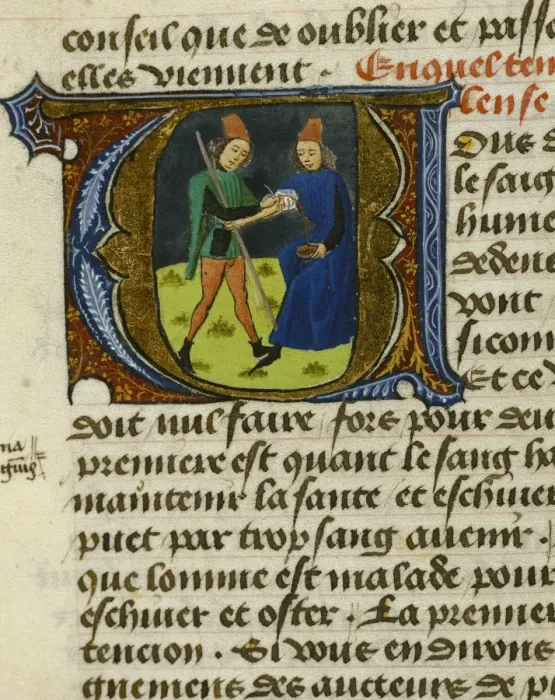 conseil que de oublier et passe
elles viennent . Enquel tem
len se
Ous d
le sang
hume
dedens
vont
sicom
Et ce
doit nul faire fors pour deu
premiere est quant le sang ha
maintenir la sante et eschiuer
puet par trop sang auenir .
que lomme est malade pour
eschiuer et oster . La premier
tencion . Si vous en dirons
gnemens des aucteurs de p